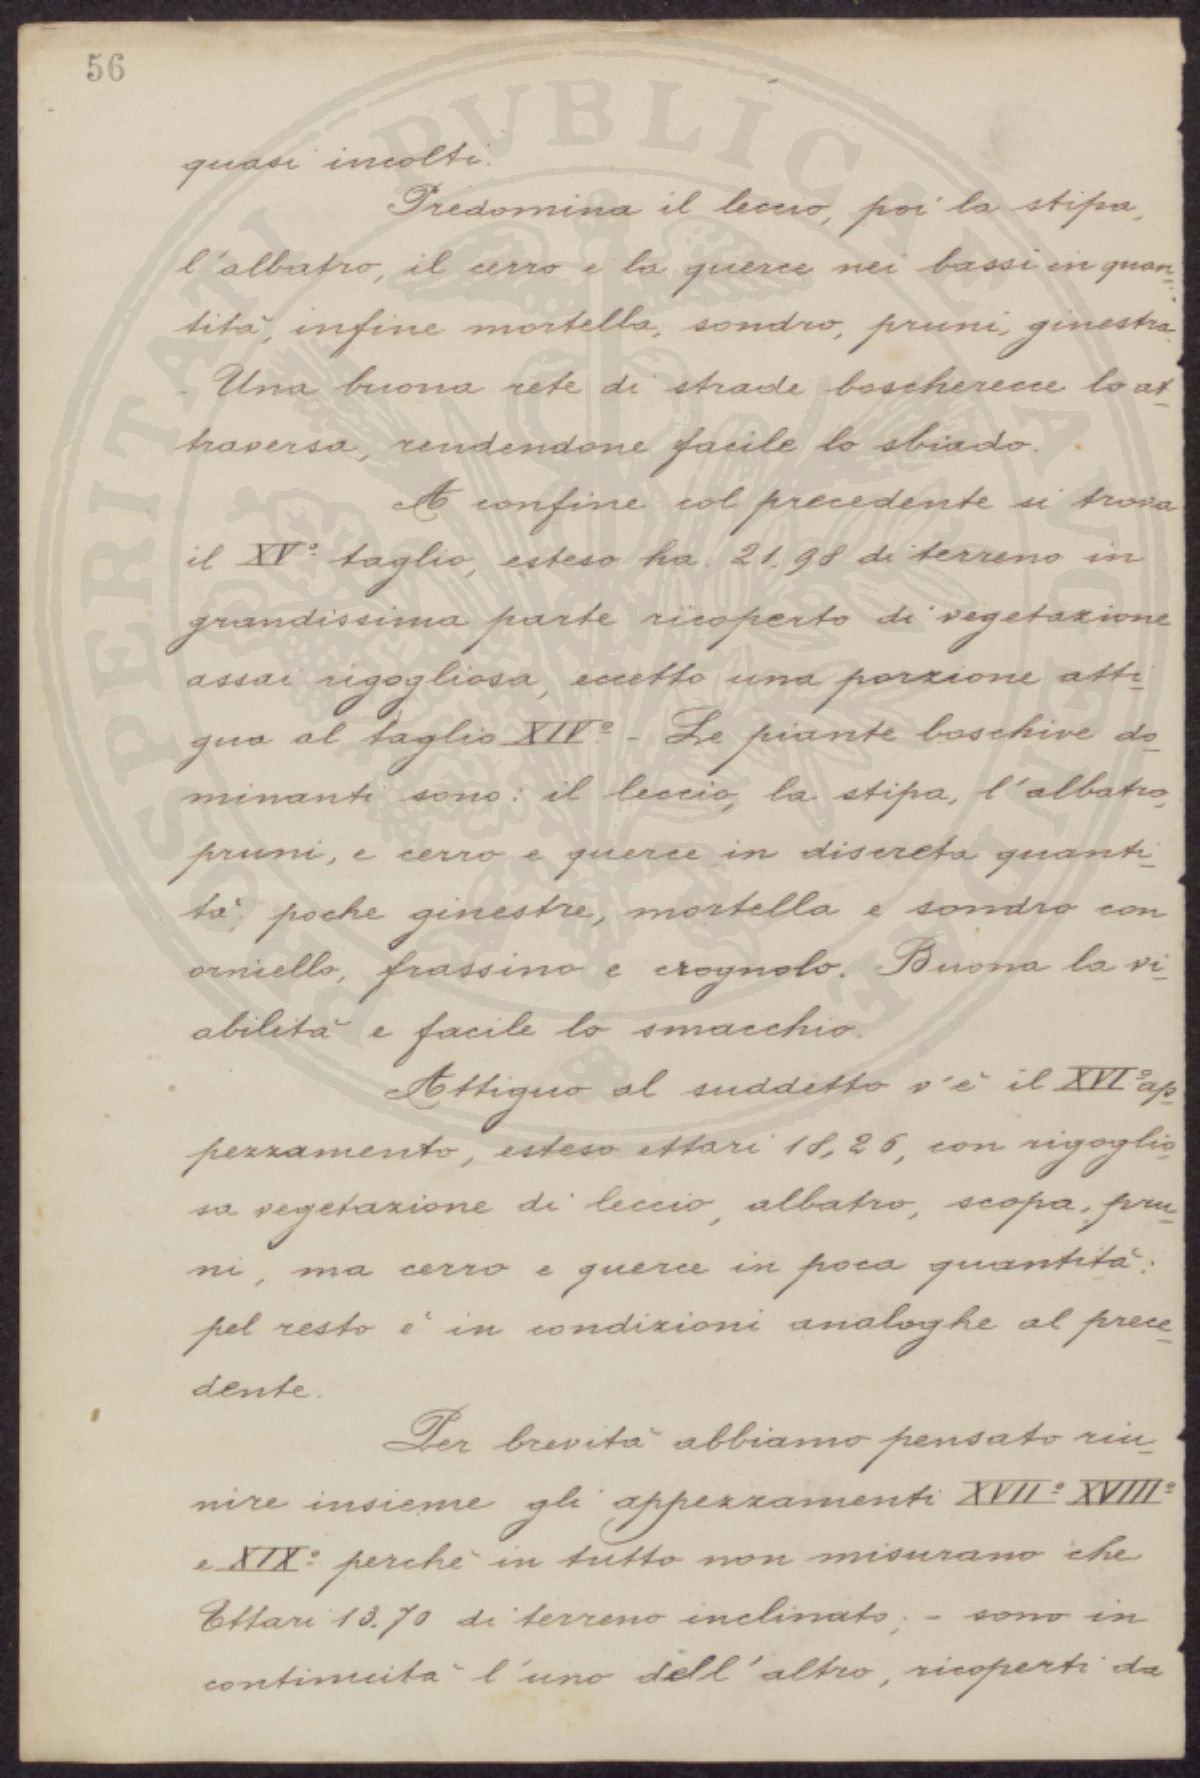 56
quasi incolti.
Predomina il leccio, poi la stipa,
l'albatro, il cerro e la querce nei bassi in quan=
tità, infine mortella, sondro, pruni, ginestra.
- Una buona rete di strade boscherecce lo at=
traversa, rendendone facile lo sbiado.
A confine col precedente si trova
il XVº taglio, esteso ha. 21.98 di terreno in
grandissima parte ricoperto di vegetazione
assai rigogliosa, eccetto una porzione atti=
gua al taglio XIVº. - Le piante boschive do=
minanti sono: il leccio, la stipa, l'albatro,
pruni, e cerro e querce in discreta quanti=
tà; poche ginestre, mortella e sondro con
orniello, frassino e crognolo. Buona la vi=
abilità e facile lo smacchio.
Attiguo al suddetto v'è il XVIº ap=
pezzamento, esteso ettari 18,26, con rigoglio=
sa vegetazione di leccio, albatro, scopa, pru=
ni, ma cerro e querce in poca quantità:
pel resto è in condizioni analoghe al prece=
dente.
Per brevità abbiamo pensato riu=
nire insieme gli appezzamenti XVIIº XVIIIº
e XIXº perchè in tutto non misurano che
Ettari 13.70 di terreno inclinato; - sono in
continuità l'uno dell'altro, ricoperti da
PROSPERITATI PUBLICAE